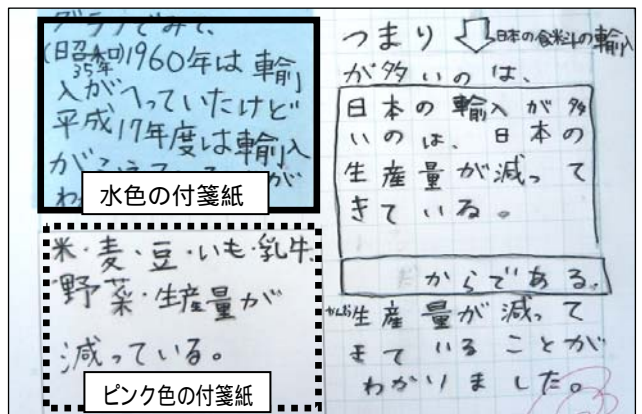 グラフでみて、
(昭和)1960年は輸
35年
入がへっていたけど
平成17年度は輸入
が
わ が
水色の付箋紙
米・麦・豆・いも・乳牛、
野菜・生産量が
減っている。
ピンク色の付箋紙
つまり 日本の食料の輸入
が多いのは、
日本の輸入が多
いのは、日本の
生産量が減って
きている。
からである。
生産量が減って
きていることが
わかりました。